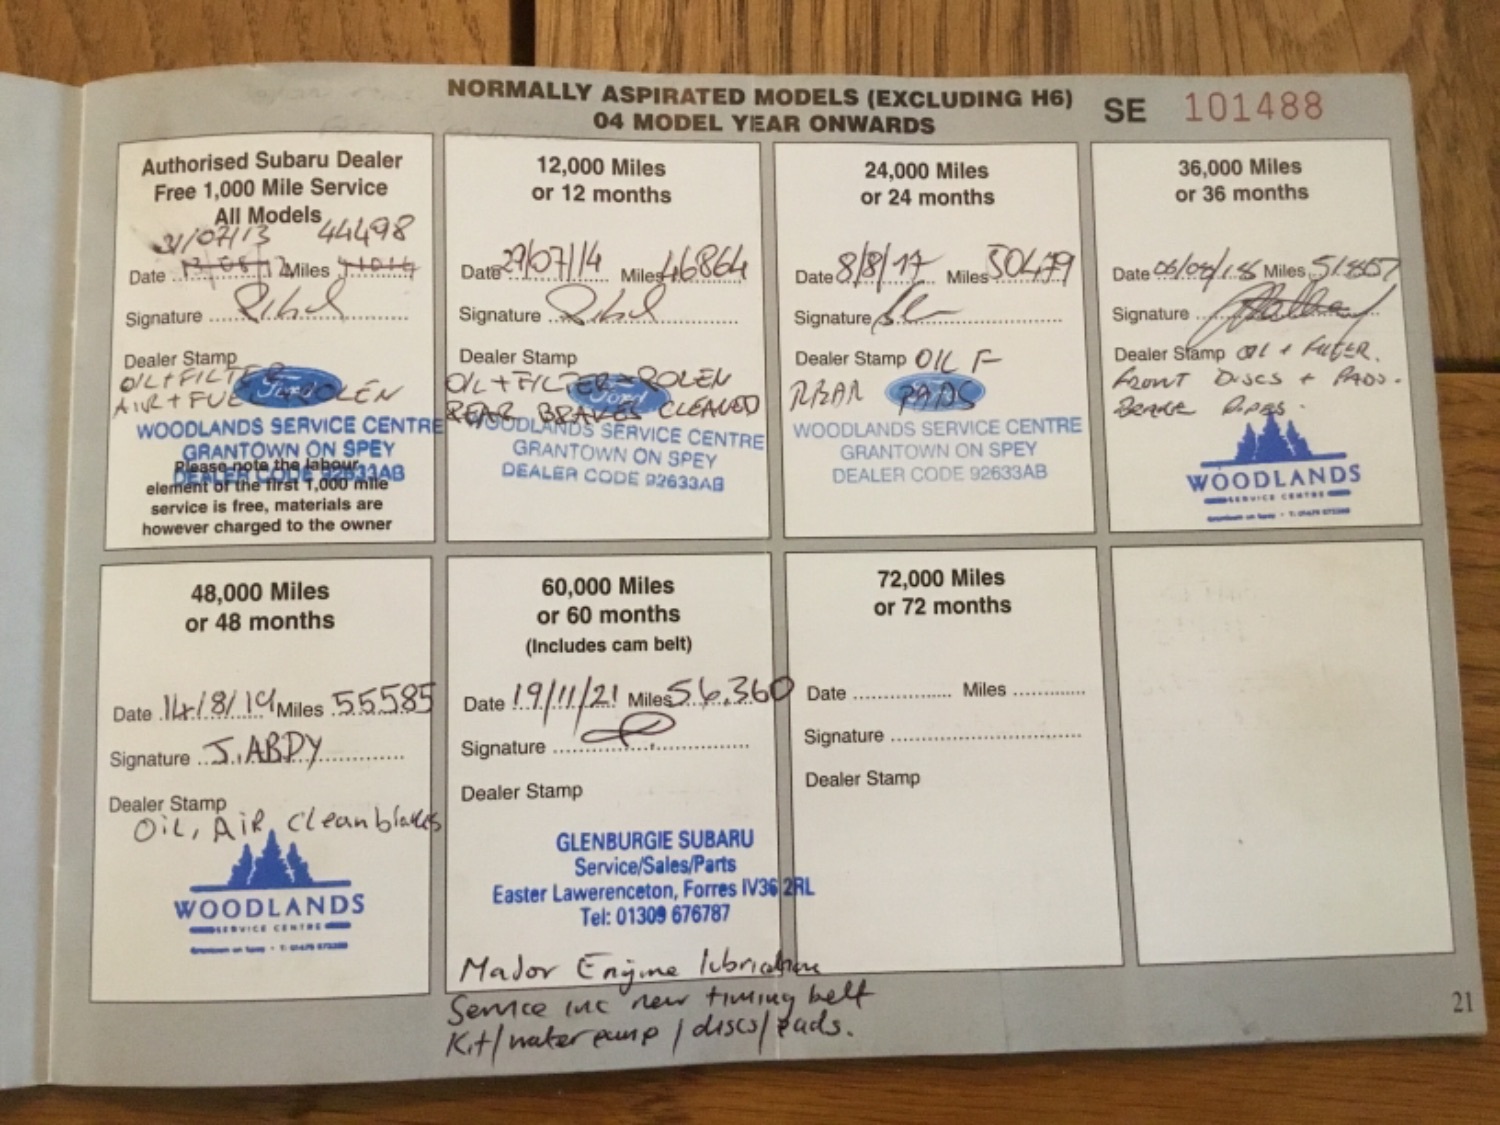 NORMALLY ASPIRATED MODELS (EXCLUDING H6)
04 MODEL YEAR ONWARDS
SE 101488
Authorised Subaru Dealer
Free 1,000 Mile Service
All Models
31/07/13 44498
Date Miles
Signature
Dealer Stamp
OIL + FILTER
AIR + FUEL + POLEN
Ford
WOODLANDS SERVICE CENTRE
GRANTOWN ON SPEY
DEALER CODE 92633AB
Please note the labour
element of the first 1,000 mile
service is free, materials are
however charged to the owner
12,000 Miles
or 12 months
Date 29/07/14 Miles 46864
Signature
Dealer Stamp
OIL + FILTER + POLEN
REAR BRAKES CLEANED
Ford
WOODLANDS SERVICE CENTRE
GRANTOWN ON SPEY
DEALER CODE 92633AB
24,000 Miles
or 24 months
Date 8/8/17 Miles 50479
Signature
Dealer Stamp OIL F
REAR PADS
WOODLANDS SERVICE CENTRE
GRANTOWN ON SPEY
DEALER CODE 92633AB
36,000 Miles
or 36 months
Date Miles
Signature
Dealer Stamp OIL + FILTER.
FRONT DISCS + PADS.
BRAKE PIPES.
WOODLANDS
SERVICE CENTRE
48,000 Miles
or 48 months
Date 14/8/19 Miles 55585
Signature J. ABDY
Dealer Stamp
OIL, AIR, Clean
WOODLANDS
SERVICE CENTRE
60,000 Miles
or 60 months
(Includes cam belt)
Date 19/11/21 Miles 56,360
Signature
Dealer Stamp
GLENBURGIE SUBARU
Service/Sales/Parts
Easter Lawerenceton, Forres IV36 2RL
Tel: 01309 676787
Major Engine lubrication
Service inc new timing belt
Kit/water pump / discs/pads.
72,000 Miles
or 72 months
Date Miles
Signature
Dealer Stamp
21